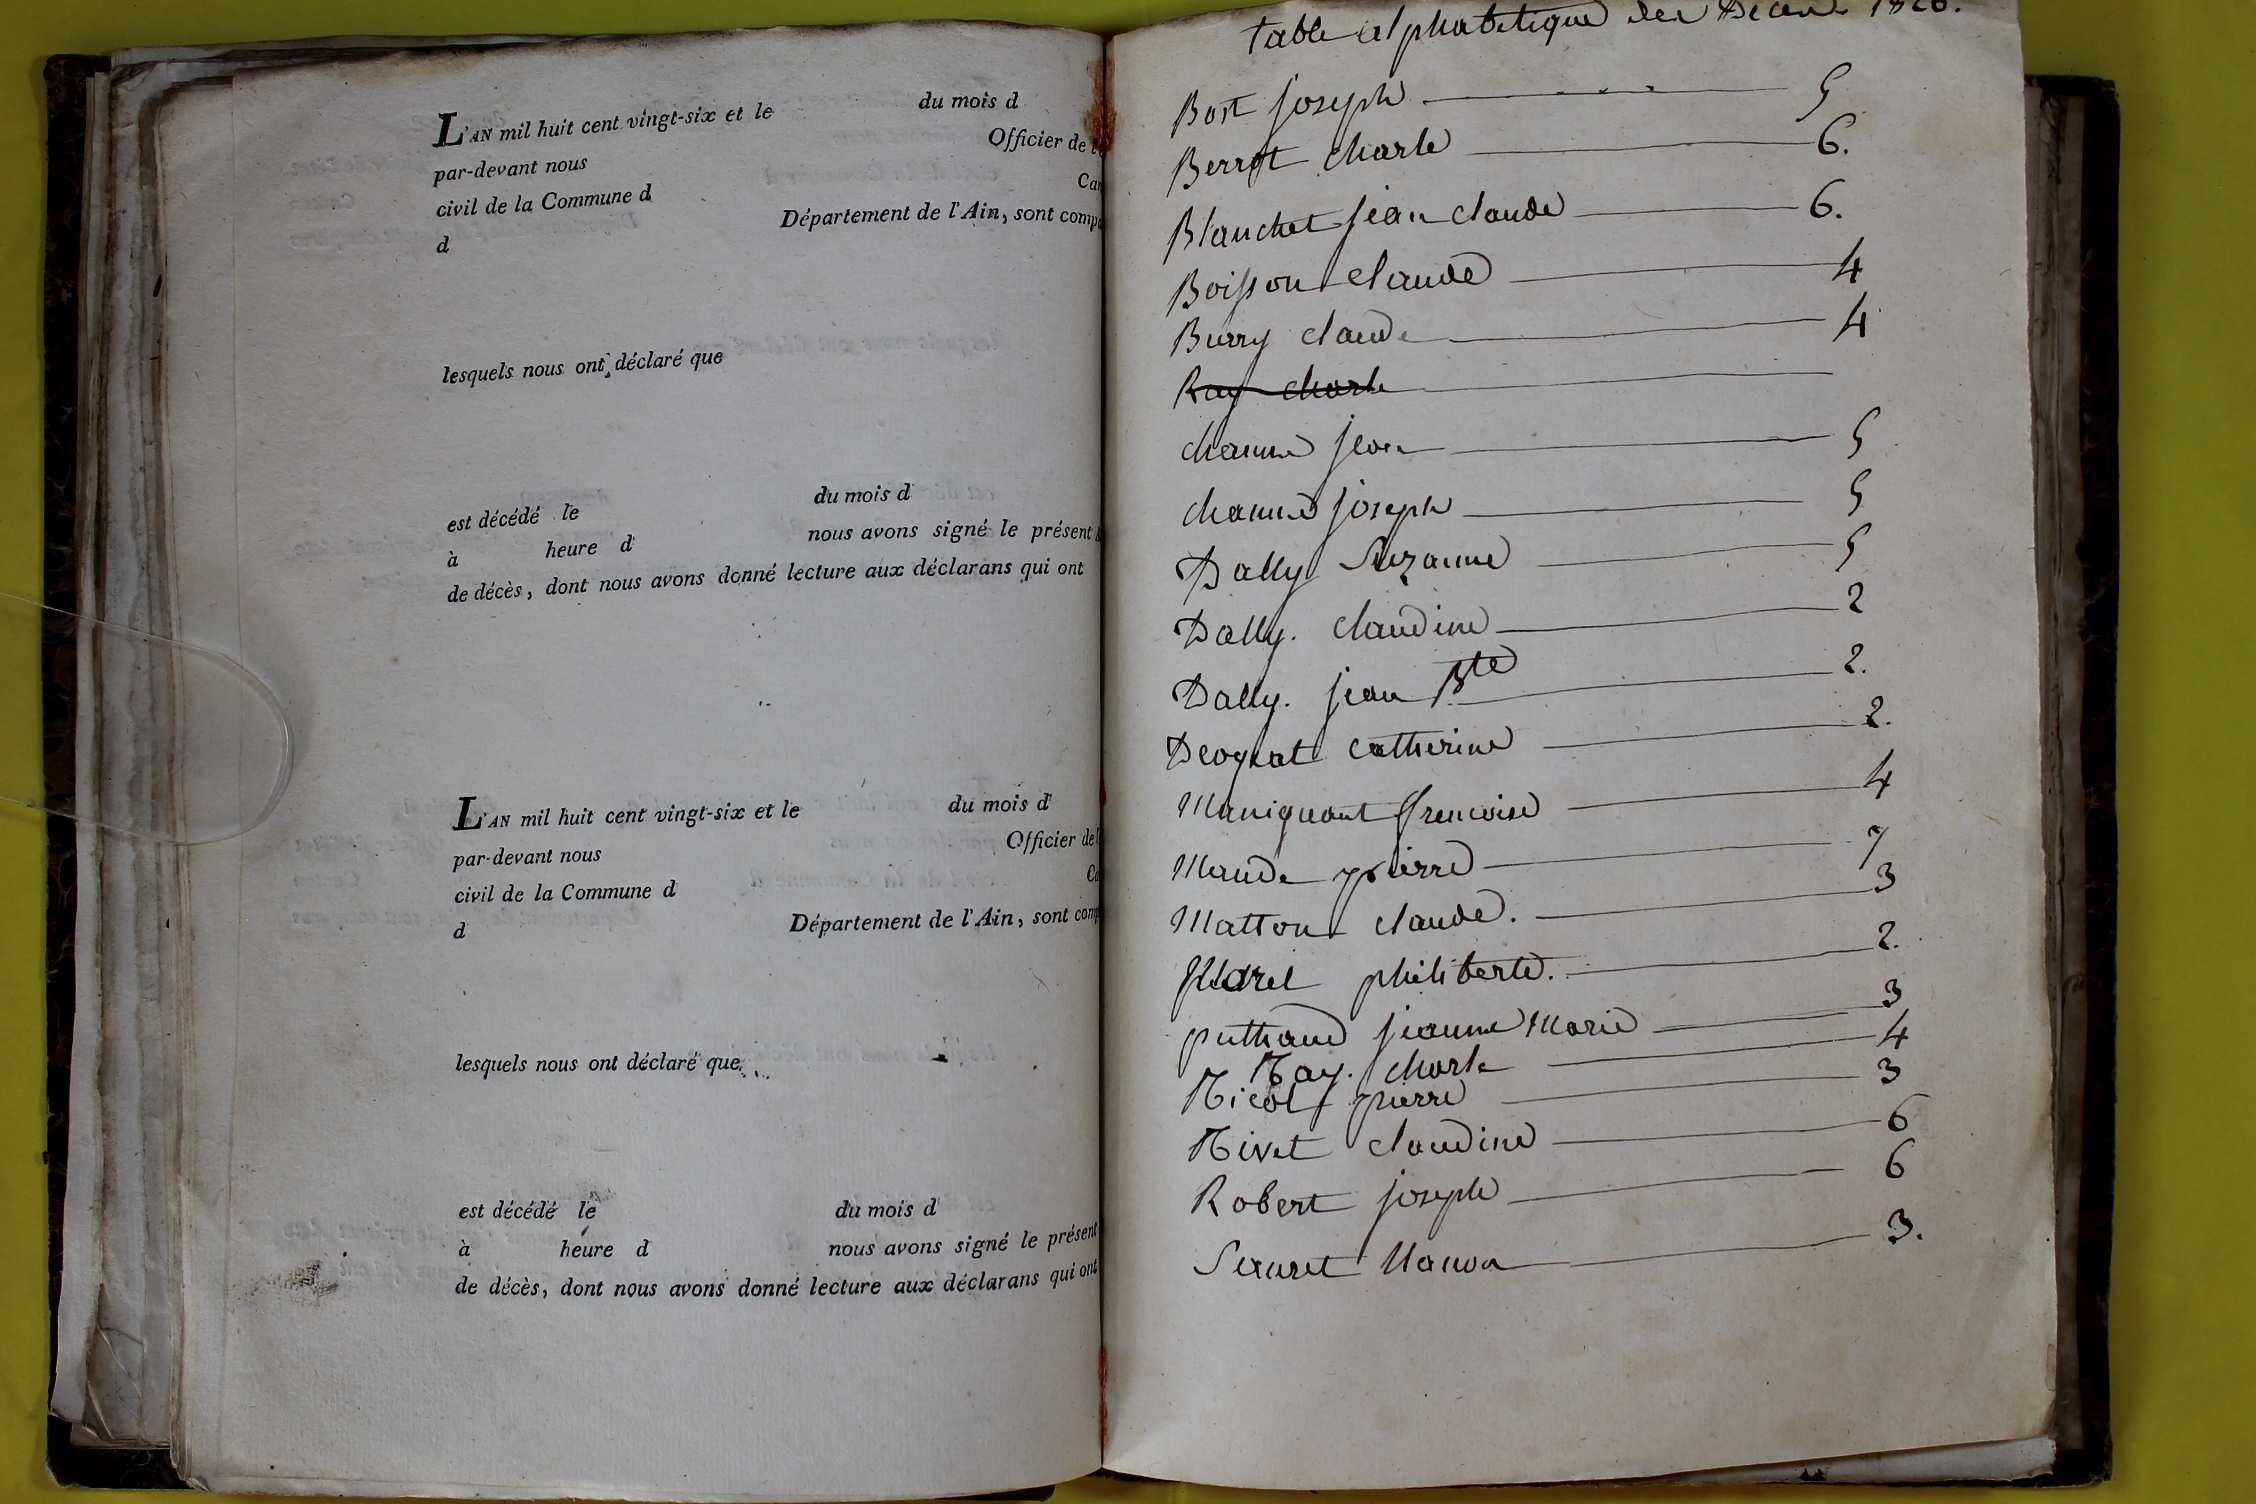 L'AN mil huit cent vingt-six et le du mois d
par-devant nous Officier de l'
civil de la Commune d Can
d Département de l'Ain, sont compa
lesquels nous ont déclaré que
est décédé le du mois d
à heure d nous avons signé le présent
de décès, dont nous avons donné lecture aux déclarans qui ont
L'AN mil huit cent vingt-six et le du mois d
par-devant nous Officier de
civil de la Commune d Ca
d Département de l'Ain, sont comp
lesquels nous ont déclaré que
est décédé le du mois d
à heure d nous avons signé le présent
de décès, dont nous avons donné lecture aux déclarans qui ont
table alphabetique des Deces 1826.
Bost joseph 5
Berrot charle 6.
Blanchet jean claude 6.
Boisson claude 4
Burry claude 4
Ray charle
channe jean 5
channe joseph 5
Dally Suzanne 5
Dally. claudine 2
Dally. jean Bte 2.
catherine 2.
Maniquant francoise 4
pierre 7
Matton claude. 3
Morel philiberte. 2.
puthaud jeanne Marie 3
Ray. charle 4
Ricol pierre 3
Rivet claudine 6
Robert joseph 6
3.